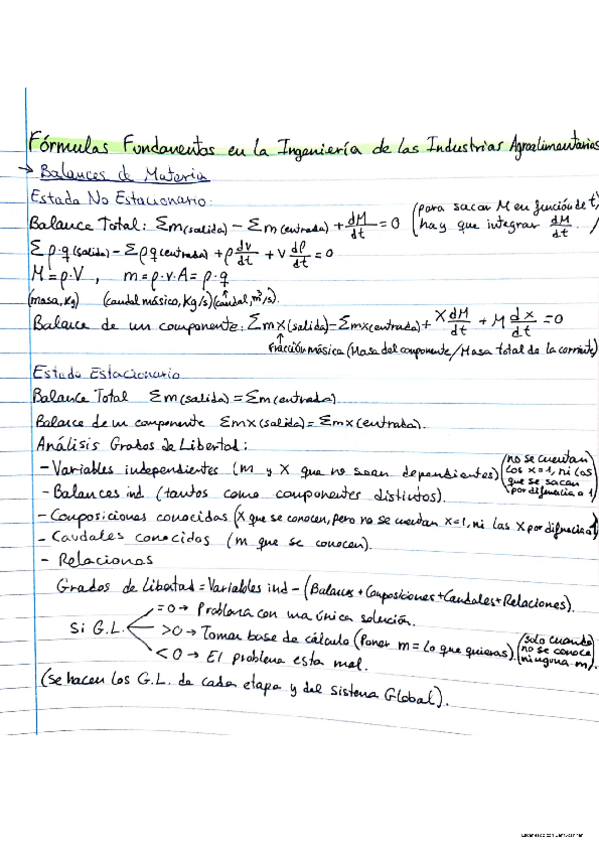 Fórmulas Fundamentos en la Ingeniería de las Industrias Agroalimentarias
→ Balances de Materia
Estado No Estacionario:
Balance Total: Σm(salida) - Σm(entrada) + dM/dt = 0 (para sacar M en función de t, hay que integrar dM/dt.)
Σρ·q(salida) - Σρq(entrada) + ρ dv/dt + v dρ/dt = 0
M = ρ·V , m = ρ·v·A = ρ·q
(masa, kg) (caudal másico, kg/s) (caudal, m³/s).
Balance de un componente: Σmx(salida) - Σmx(entrada) + x dM/dt + M dx/dt = 0
↑ Fracción másica (Masa del componente/Masa total de la corriente)
Estado Estacionario
Balance Total Σm(salida) = Σm(entrada)
Balance de un componente Σmx(salida) = Σmx(entrada).
Análisis Grados de Libertad:
- Variables independientes (m y X que no sean dependientes) (no se cuentan los x=1, ni los que se sacan por diferencia a 1)
- Balances ind. (tantos como componentes distintos).
- Composiciones conocidas (X que se conocen, pero no se cuentan x=1, ni las X por diferencia a 1)
- Caudales conocidos (m que se conocen).
- Relaciones
Grados de Libertad = Variables ind - (Balances + Composiciones + Caudales + Relaciones).
Si G.L.
=0 → Problema con una única solución.
>0 → Tomar base de cálculo (Poner m = lo que quieras) (solo cuando no se conoce ninguna m).
<0 → El problema esta mal.
(se hacen los G.L. de cada etapa y del Sistema Global).